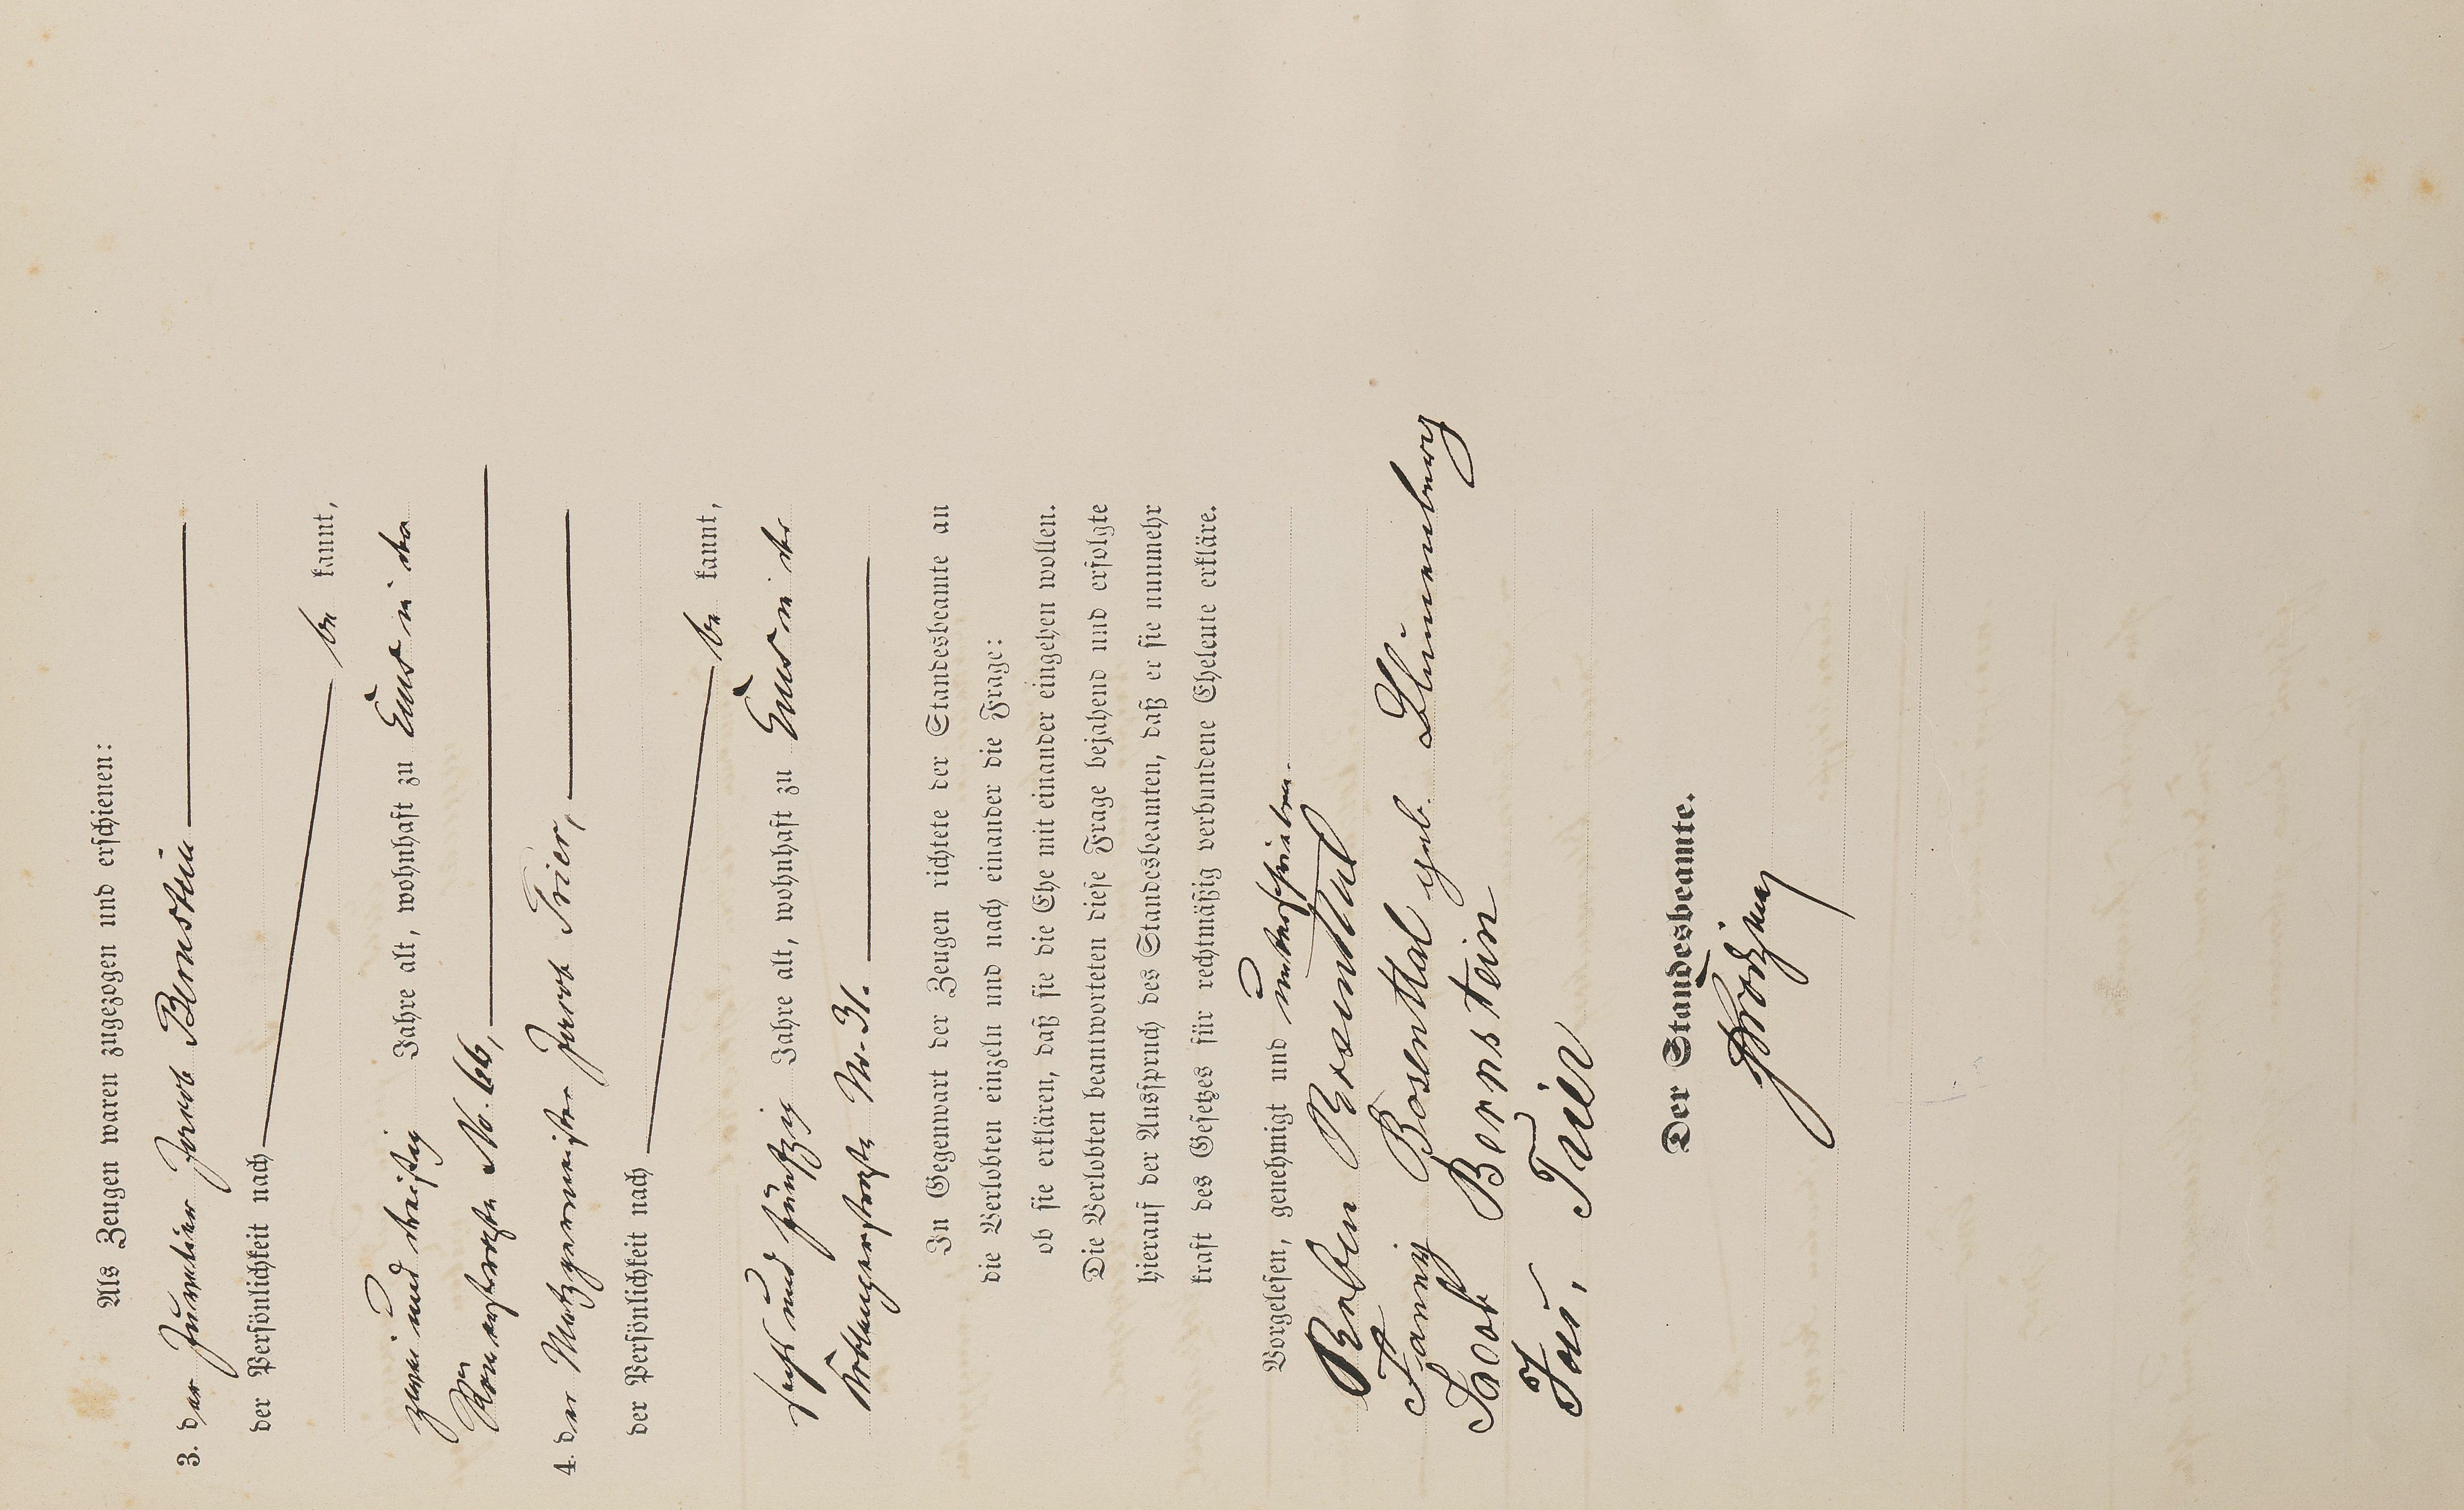 Als Zeugen waren zugezogen und erschienen:
3. der Juwelier Jacob Bernstein
der Persönlichkeit nach
be kannt,
zwei und dreißig Jahre alt, wohnhaft zu Ems in der
Römerstraße No. 66,
4. der Metzgermeister Jacob Trier,
der Persönlichkeit nach
be kannt,
sechs und fünfzig Jahre alt, wohnhaft zu Ems in der
Coblenzerstraße No. 31.
In Gegenwart der Zeugen richtete der Standesbeamte an
die Verlobten einzeln und nach einander die Frage:
ob sie erklären, daß sie die Ehe mit einander eingehen wollen.
Die Verlobten beantworteten diese Frage bejahend und erfolgte
hierauf der Ausspruch des Standesbeamten, daß er sie nunmehr
kraft des Gesetzes für rechtmäßig verbundene Eheleute erkläre.
Vorgelesen, genehmigt und unterschrieben.
Ruben Rosenthal
Fanny Rosenthal geb. Blumenburg
Jacob Bernstein
Jac. Trier
Der Standesbeamte.